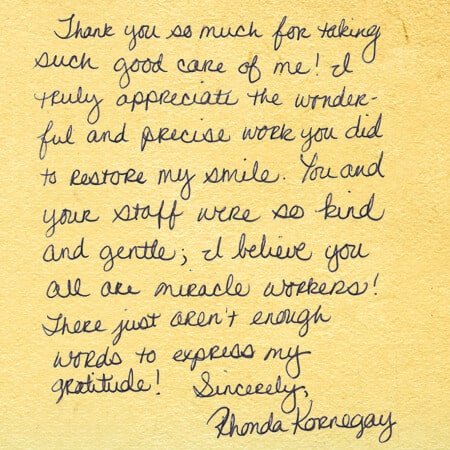 Thank you so much for taking
such good care of me! I
truly appreciate the wonder-
ful and precise work you did
to restore my smile. You and
your staff were so kind
and gentle; I believe you
all are miracle workers!
There just aren't enough
words to express my
gratitude! Sincerely,
Rhonda Kornegay